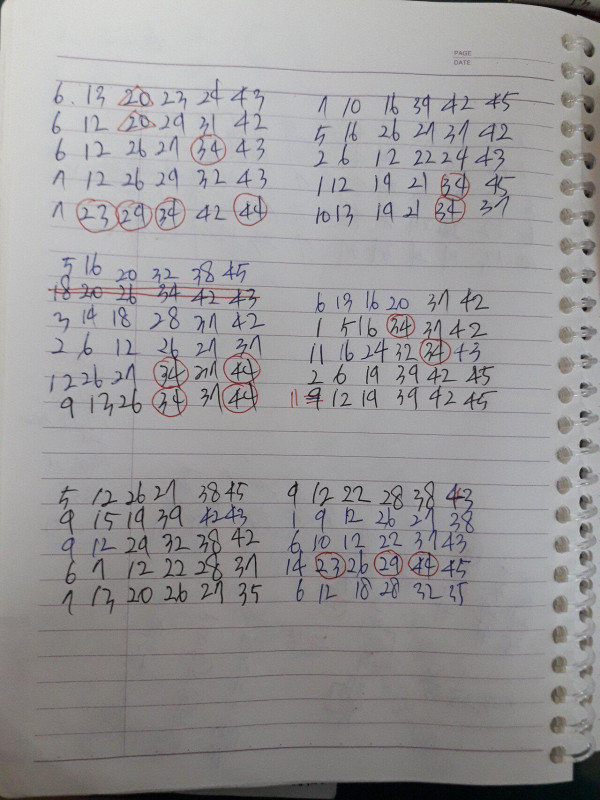 PAGE
DATE
6. 13 20 23 24 43
6 12 20 29 31 42
6 12 26 27 34 43
7 12 26 29 32 43
7 23 29 34 42 44
7 10 16 39 42 45
5 16 26 27 37 42
2 6 12 22 24 43
1 12 19 21 34 45
10 13 19 21 34 37
5 16 20 32 38 45
18 20 26 34 42 43
3 14 18 28 37 42
2 6 12 26 27 37
12 26 27 34 37 44
9 13 26 34 37 44
6 13 16 20 37 42
1 5 16 34 37 42
11 16 24 32 34 43
2 6 19 39 42 45
11 9 12 19 39 42 45
5 12 26 27 38 45
9 15 19 39 42 43
9 12 29 32 38 42
6 7 12 22 28 37
7 13 20 26 27 35
9 12 22 28 38 43
1 9 12 26 27 38
6 10 12 22 37 43
14 23 26 29 44 45
6 12 18 28 32 35